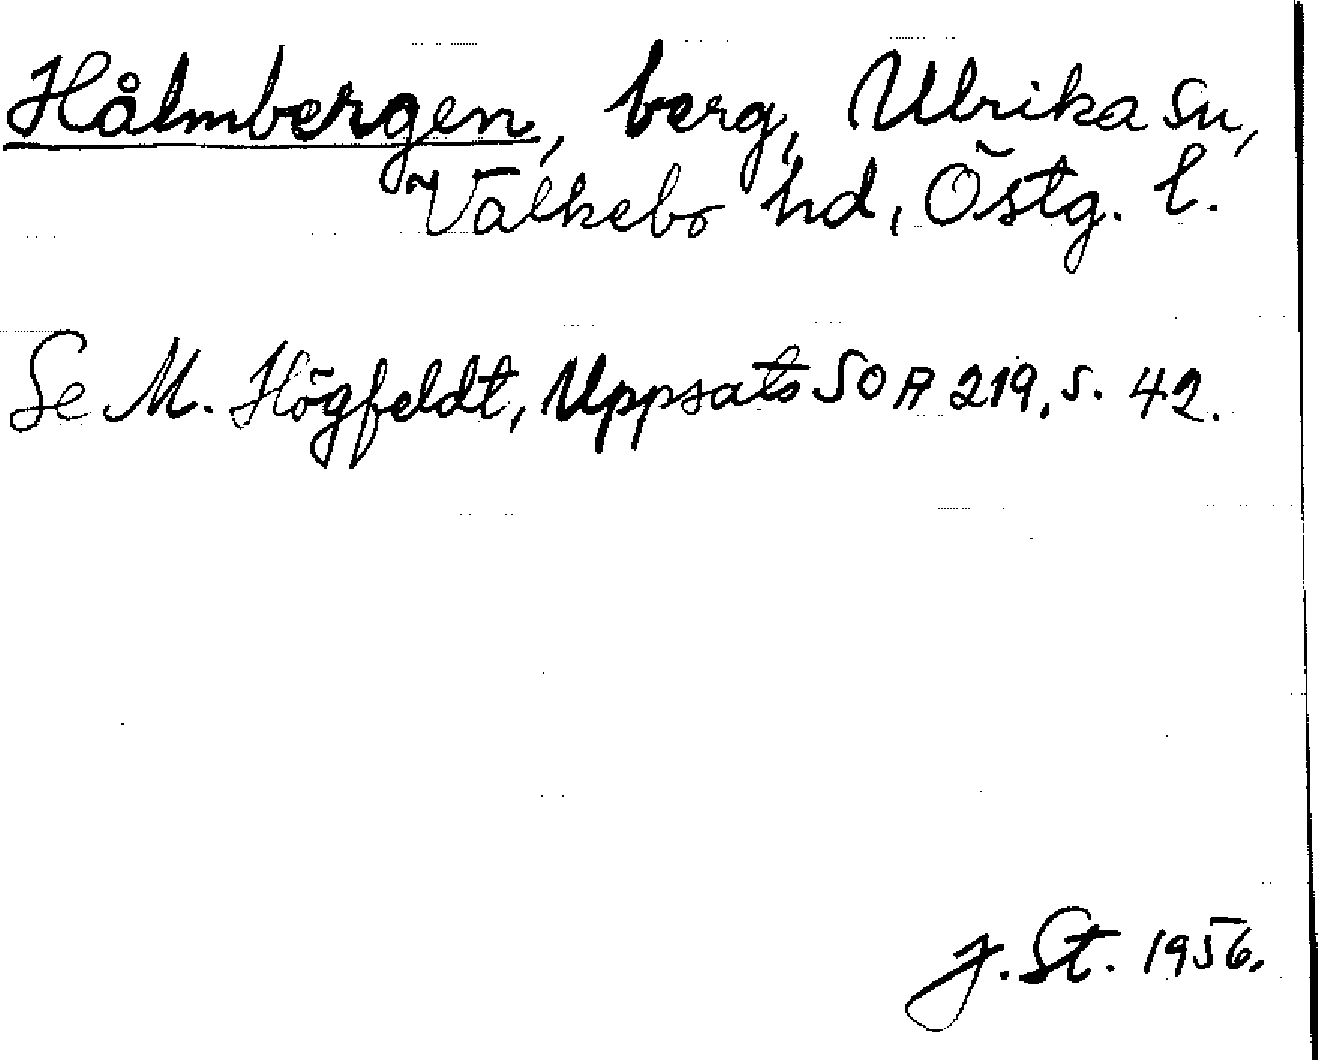 Hålmbergen, berg, Ulrika sn,
Valkebo hd, Östg. l.
Se M. Högfeldt, Uppsats SOA 219, s. 42.
J. St. 1956.